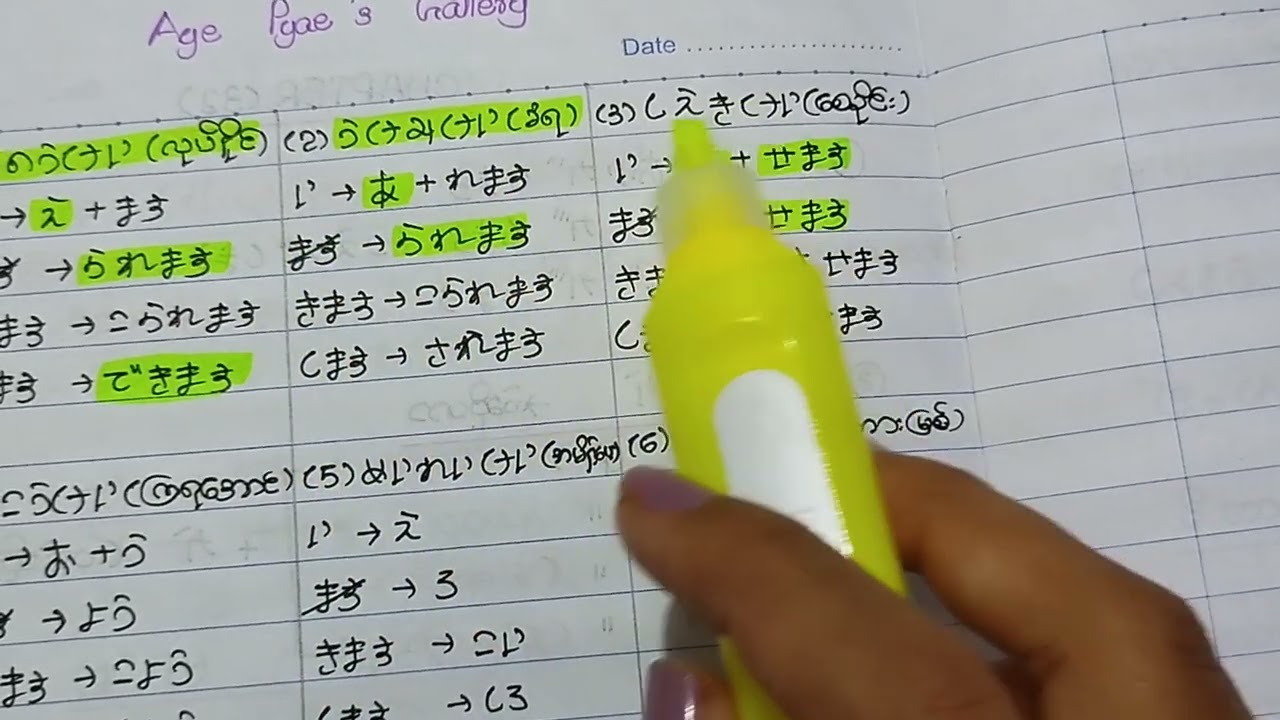 Age Pyae's Gallery
Date
のうけい (လုပ်နိုင်)
→ え + ます
→ られます
ます → こられます
ます → できます
(2) うけみけい (ခံရ)
い → あ + れます
ます → られます
きます → こられます
します → されます
(3) しえきけい (စေခိုင်း)
い → + せます
ます せます
せます
ます
こうけい (ကြရအောင်)
→ お + う
→ よう
ます → こよう
(5) めいれいけい
い → え
ます → ろ
きます → こい
します → しろ
(6)